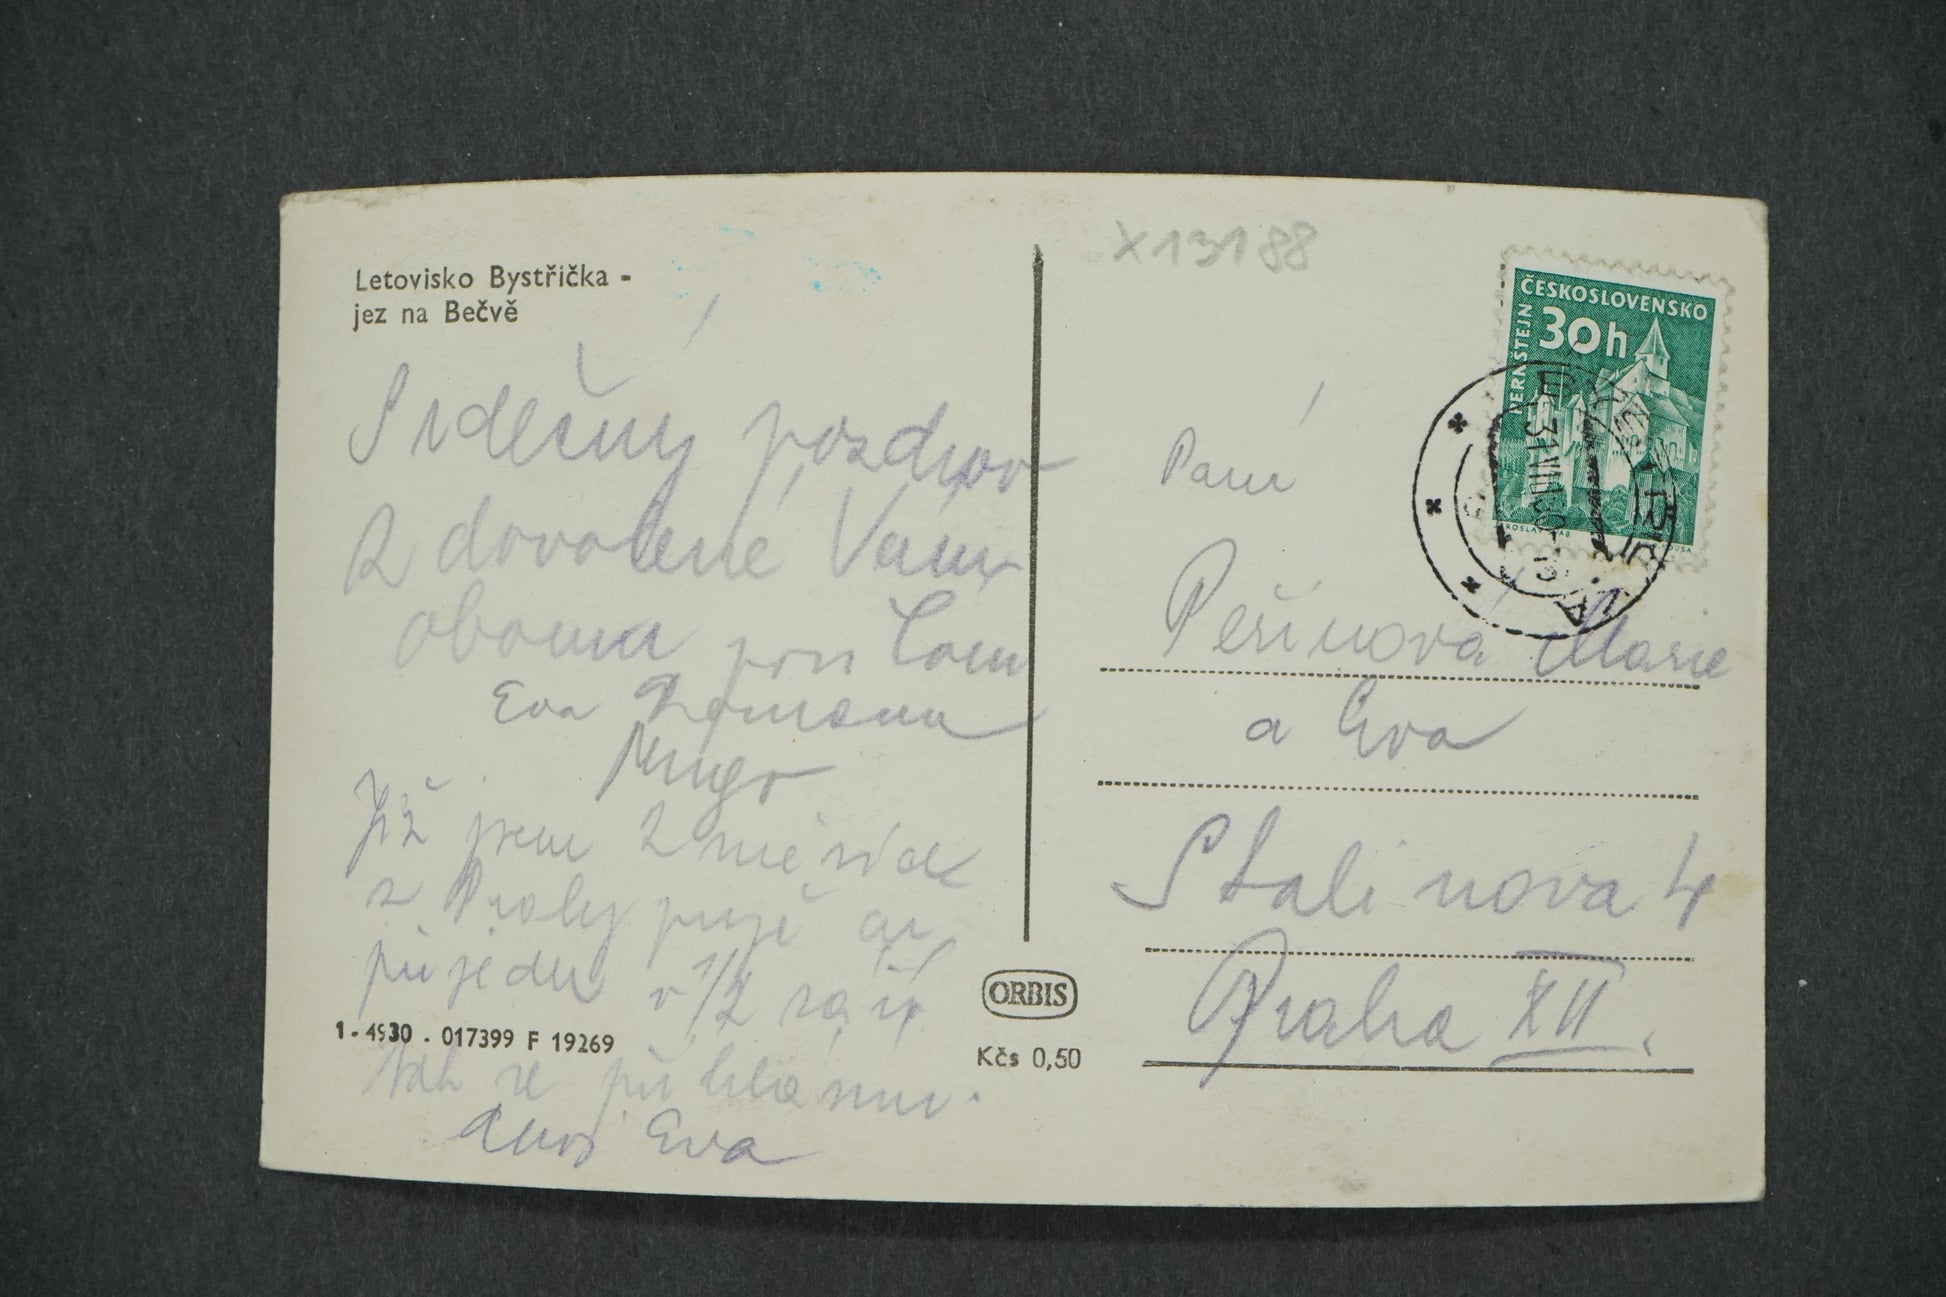 Letovisko Bystřička -
jez na Bečvě
Srdečný pozdrav
z dovolené Vám
oboum
Eva
Již jsem 2 měsíce
z Prahy pryč až
přijedu v 1/2 září
tak se přihlásím.
Eva
1 - 4930 . 017399 F 19269
ORBIS
Kčs 0,50
X13188
ČESKOSLOVENSKO
30h
PERNŠTEJN
31.VIII.60
Paní
Peřinová Marie
a Eva
Stalinova 4
Praha XII.